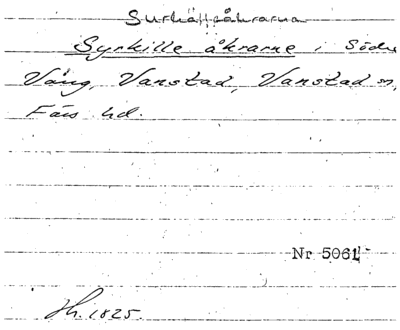 Surhällsåkrarna
Syrkille åkrarne i Södra
Vång, Vanstad, Vanstad sn,
Färs hd.
Nr 5061
Jh. 1825.